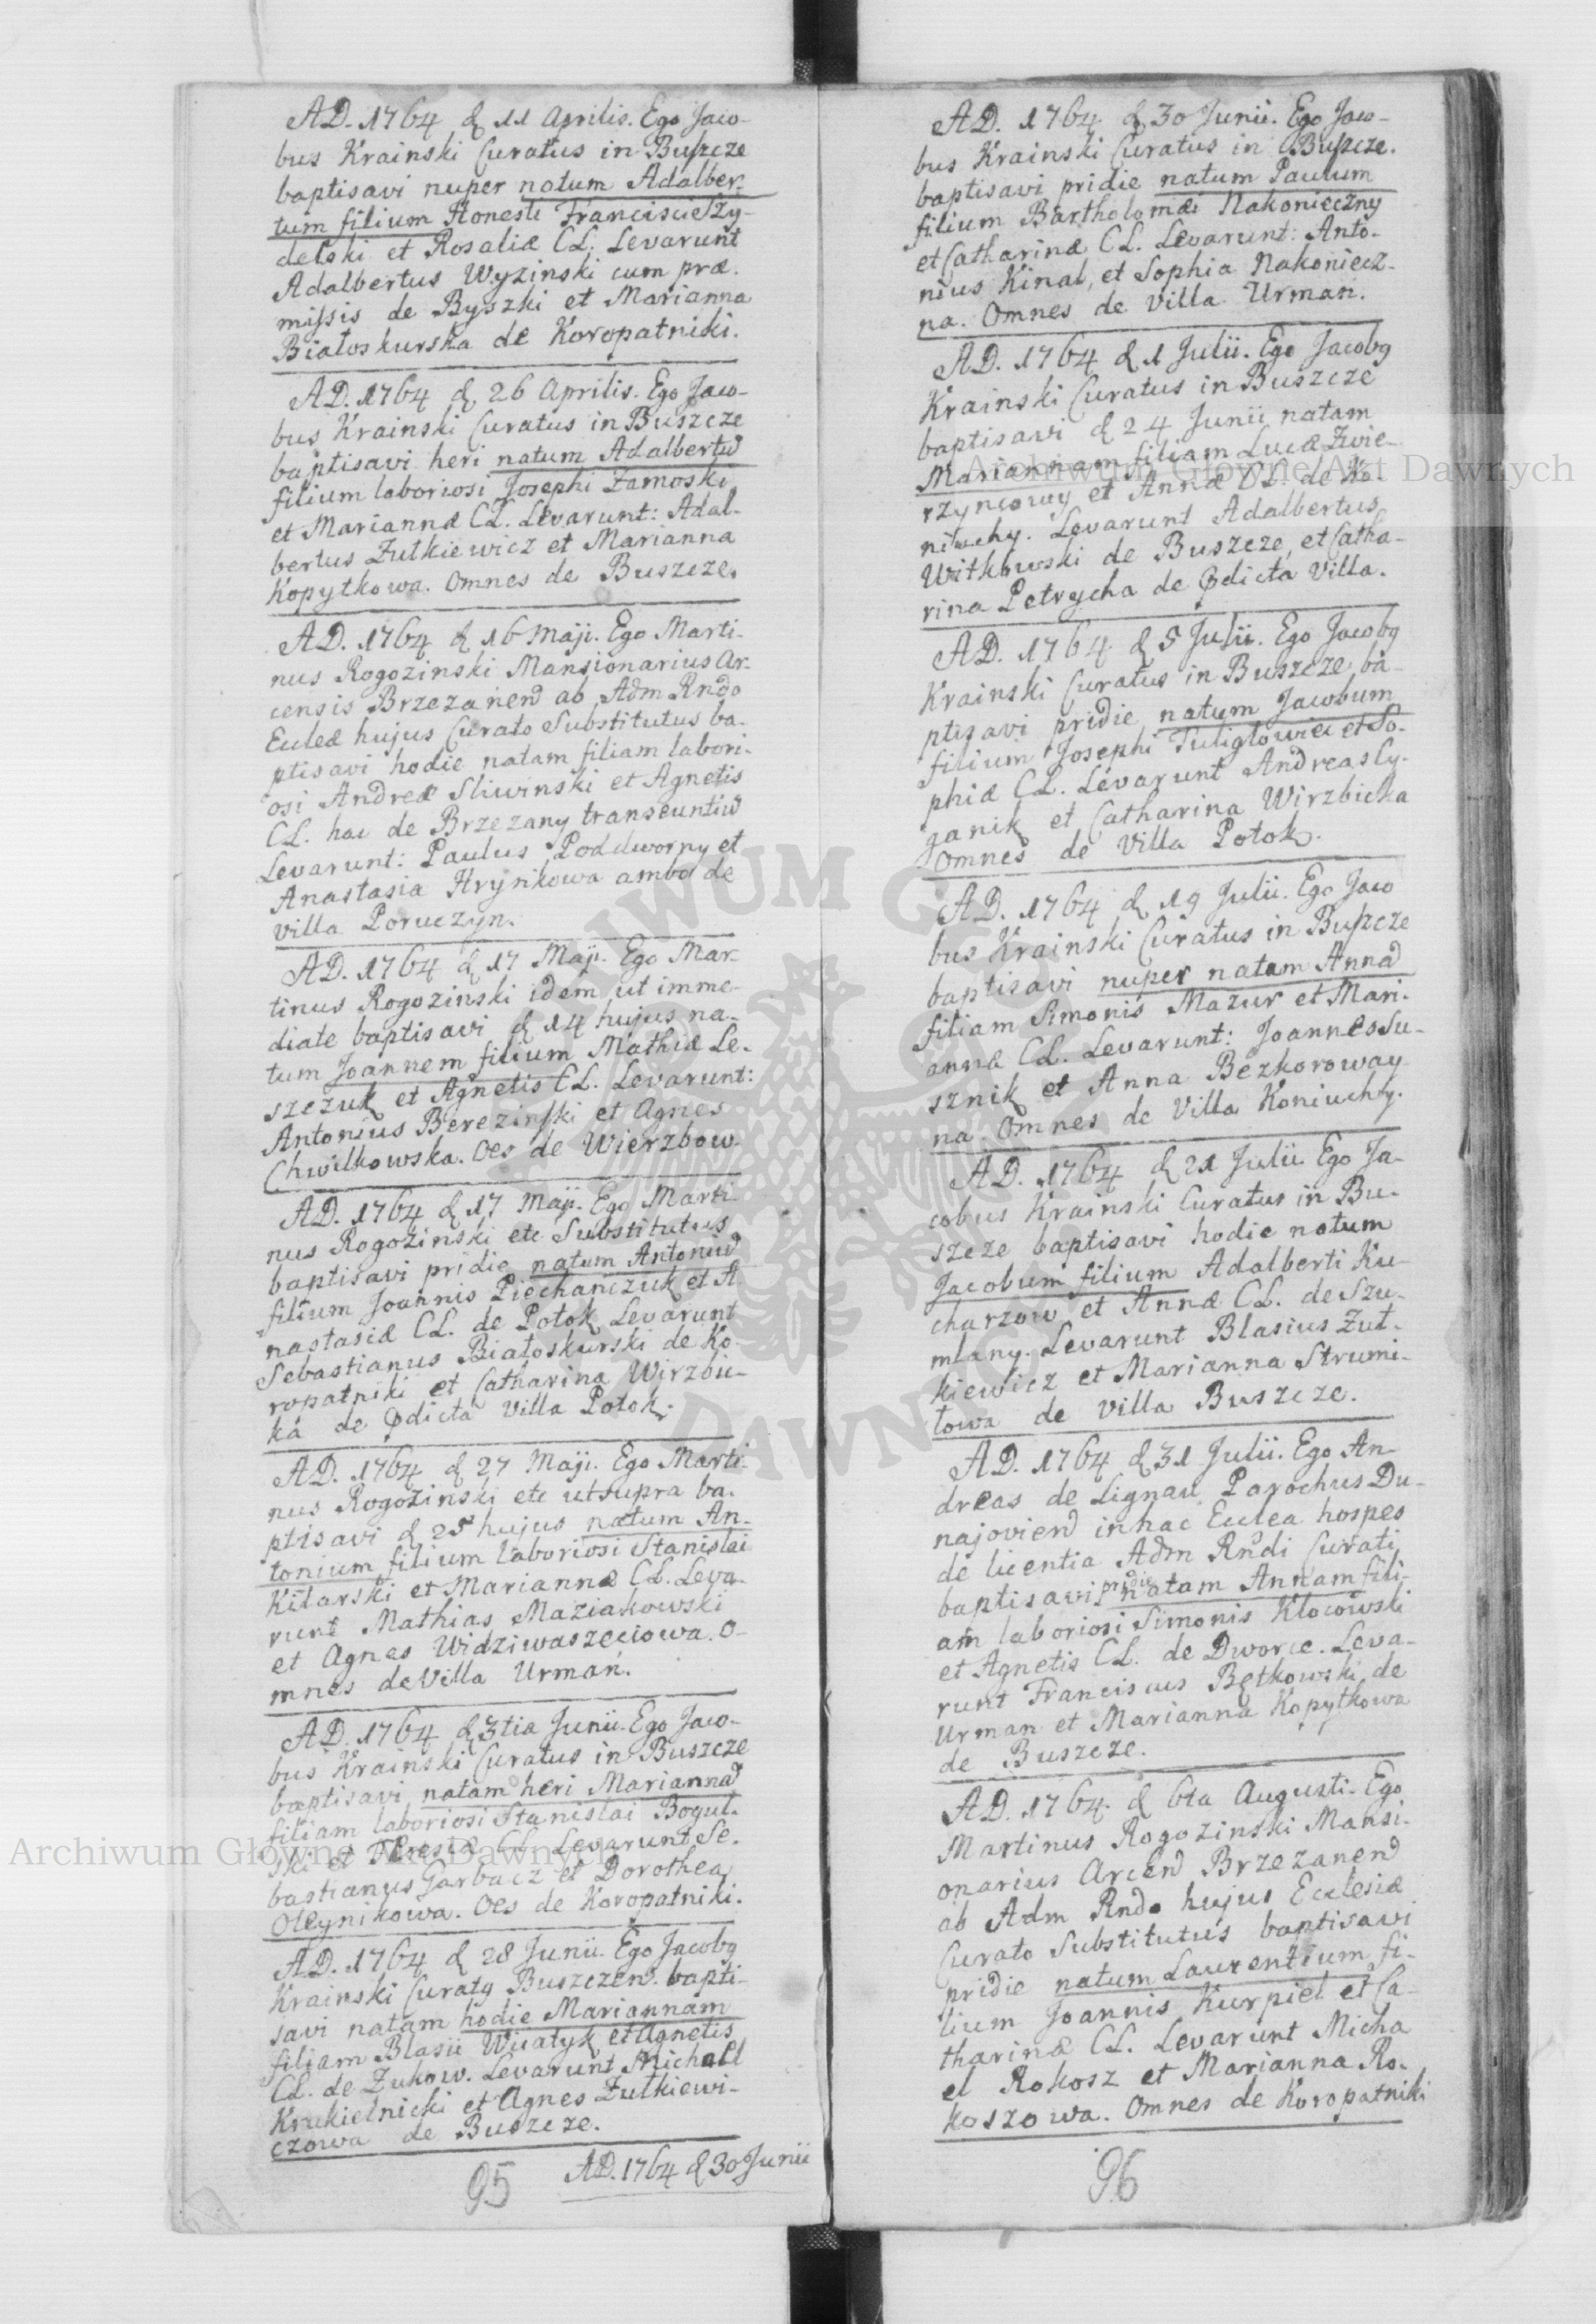 AD. 1764 d 11 Aprilis. Ego Jaco-
bus Krainski Curatus in Buszcze
baptisavi nuper natum Adalber-
tum filium Honesti Francisci Szy-
delski et Rosaliæ CL. Levarunt
Adalbertus Wyzinski cum præ-
missis de Byszki et Marianna
Białoskurska de Koropatniki.
AD. 1764 d 26 Aprilis. Ego Jaco-
bus Krainski Curatus in Buszcze
baptisavi heri natum Adalbertu
filium laboriosi Josephi Zamoski
et Mariannæ CL. Levarunt: Adal-
bertus Zułkiewicz et Marianna
Kopytkowa. Omnes de Buszcze.
AD. 1764 d 16 Maji. Ego Marti-
nus Rogozinski Mansionarius Ar-
censis Brzezanen ab Adm Rndo
Eccleæ hujus Curato Substitutus ba-
ptisavi hodie natam filiam labori-
osi Andreæ Sliwinski et Agnetis
CL. hac de Brzezany transeuntiu
Levarunt: Paulus Poddworny et
Anastasia Hrynikowa ambo de
villa Poruczyn.
AD. 1764 d 17 Maji. Ego Mar-
tinus Rogozinski idem ut imme-
diate baptisavi d 14 hujus na-
tum Joannem filium Mathiæ Le-
szczuk et Agnetis CL. Levarunt:
Antonius Berezinski et Agnes
Chwilkowska. Oes de Wierzbow.
AD. 1764 d 17 Maji. Ego Marti-
nus Rogozinski etc Substitutus
baptisavi pridie natum Antoniu
filium Joannis Piechańczuk et A-
nastasiæ CL. de Potok Levarunt
Sebastianus Białoskurski de Ko-
ropatniki et Catharina Wirzbic-
ka de pdicta Villa Potok.
AD. 1764 d 27 Maji. Ego Marti-
nus Rogozinski etc ut supra ba-
ptisavi d 25 hujus natum An-
tonium filium laboriosi Stanislai
Kitarski et Mariannæ CL. Leva-
runt Mathias Maziakowski
et Agnes Widziwaszeciowa. O-
mnes de Villa Urmań.
AD. 1764 d 3tia Junii. Ego Jaco-
bus Krainski Curatus in Buszcze
baptisavi natam heri Marianna
filiam laboriosi Stanislai Bogul-
ski et Theresiæ CL. Levarunt Se-
bastianus Garbacz et Dorothea
Oleynikowa. Oes de Koropatniki.
AD. 1764 d 28 Junii. Ego Jacobg
Krainski Curatg Buszczen. bapti-
savi natam hodie Mariannam
filiam Blasii Wicatyk et Agnetis
CL. de Zukow. Levarunt Michael
Krukielnicki et Agnes Zułkiewi-
czowa de Buszcze.
95 AD. 1764 d 30 Junii
AD. 1764 d 30 Junii. Ego Jaco-
bus Krainski Curatus in Buszcze.
baptisavi pridie natum Paulum
filium Bartholomæi Nakonieczny
et Catharinæ CL. Levarunt: Anto-
nius Kinal, et Sophia Nakoniecz-
na. Omnes de Villa Urman.
AD. 1764 d 1 Julii. Ego Jacobg
Krainski Curatus in Buszcze
baptisavi d 24 Junii natam
Mariannam filiam Lucæ Zwie-
rzyncowy et Annæ CL. de Ko-
niuchy. Levarunt Adalbertus
Witkowski de Buszcze, et Catha-
rina Petrycha de pdicta Villa.
AD. 1764 d 5 Julii. Ego Jacobg
Krainski Curatus in Buszcze ba-
ptisavi pridie natum Jacobum
filium Josephi Tuligłowicz et So-
phiæ CL. Levarunt Andreas Cy-
ganik et Catharina Wirzbicka
Omnes de Villa Potok.
AD. 1764 d 19 Julii. Ego Jaco
bus Krainski Curatus in Buszcze
baptisavi nuper natam Anna
filiam Simonis Mazur et Mari-
annæ CL. Levarunt: Joannes Su-
sznik et Anna Bezkoroway-
na. Omnes de Villa Koniuchy.
AD. 1764 d 21 Julii. Ego Ja-
cobus Krainski Curatus in Bu-
szcze baptisavi hodie natum
Jacobum filium Adalberti Ku-
charzow et Annæ CL. de Szu-
mlany. Levarunt Blasius Zuł-
kiewicz et Marianna Strumi-
łowa de villa Buszcze.
AD. 1764 d 31 Julii. Ego An-
dreas de Lignau Parochus Du-
najovien in hac Ecclea hospes
de licentia Adm Rndi Curati
baptisavi pridie natam Annam fili-
am laboriosi Simonis Kłocowski
et Agnetis CL. de Dworce. Leva-
runt Franciscus Bętkowski de
Urman et Marianna Kopytkowa
de Buszcze.
AD. 1764 d 6ta Augusti. Ego
Martinus Rogozinski Mansi-
onarius Arcen Brzezanen
ab Adm Rndo hujus Ecclesiæ
Curato Substitutus baptisavi
pridie natum Laurentium fi-
lium Joannis Kurpiel et Ca-
tharinæ CL. Levarunt Micha
el Rokosz et Marianna Ro-
koszowa. Omnes de Koropatniki
96
Archiwum Główne Akt Dawnych
Archiwum Główne Akt Dawnych